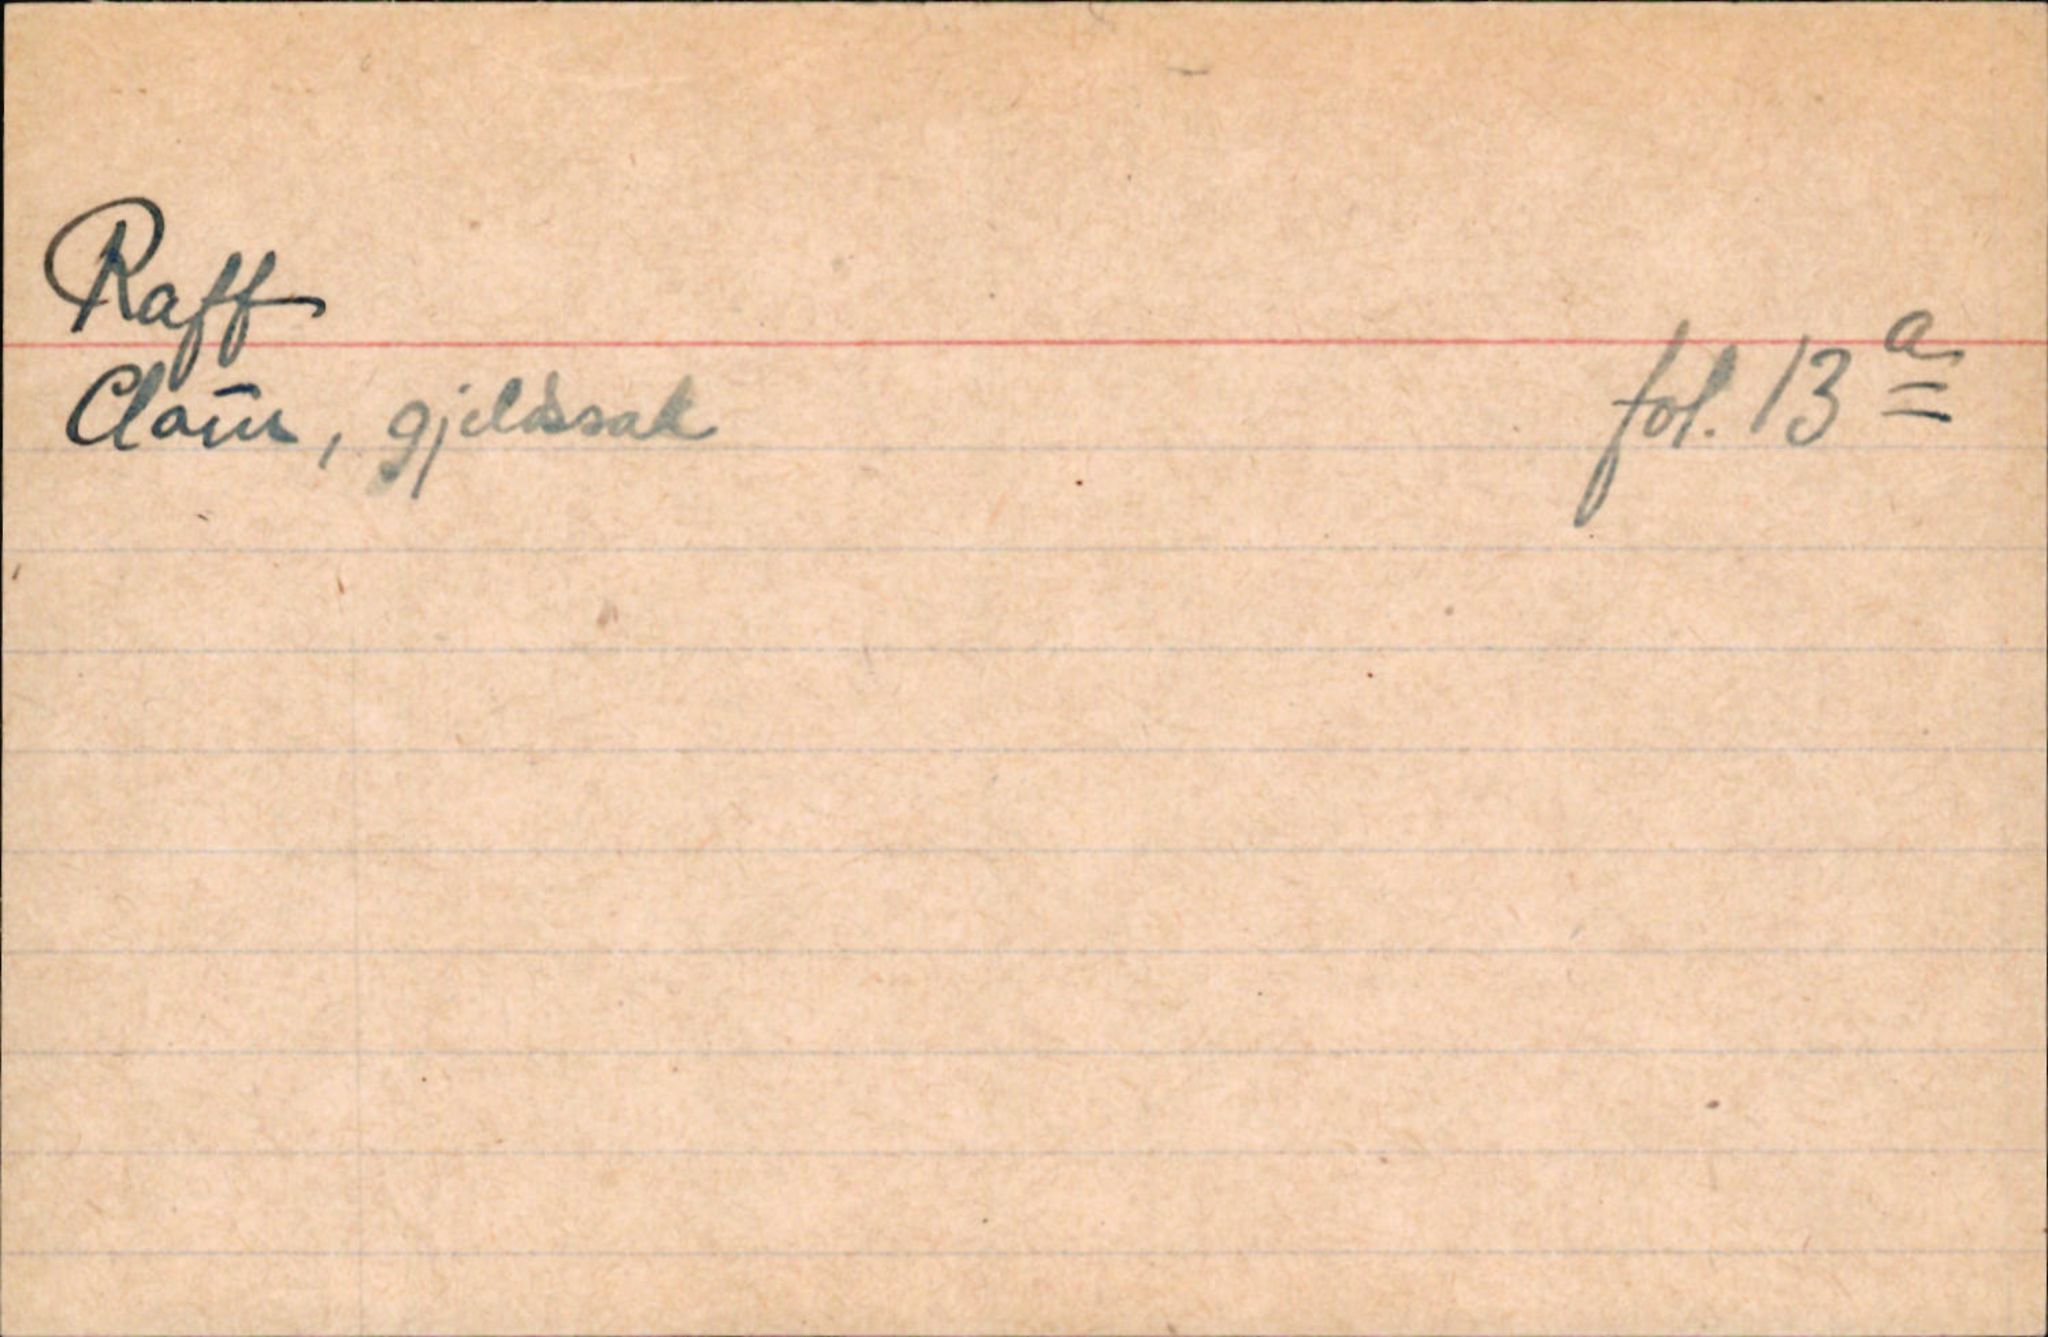 Raff
Claūs, gjeldssak fol. 13 a